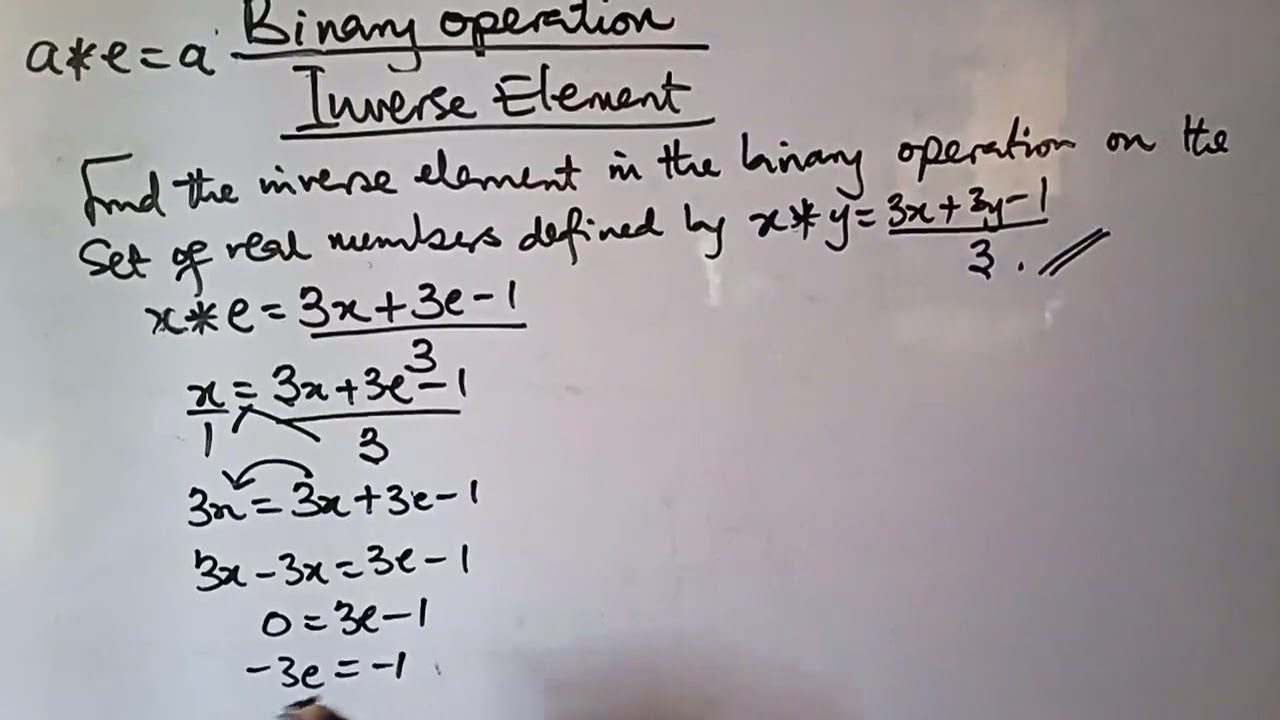 a*e=a Binary operation
Inverse Element
Find the inverse element in the binary operation on the
Set of real numbers defined by x*y=3x+3y-1/3.
x*e=3x+3e-1/3
x/1=3x+3e-1/3
3x=3x+3e-1
3x-3x=3e-1
0=3e-1
-3e=-1